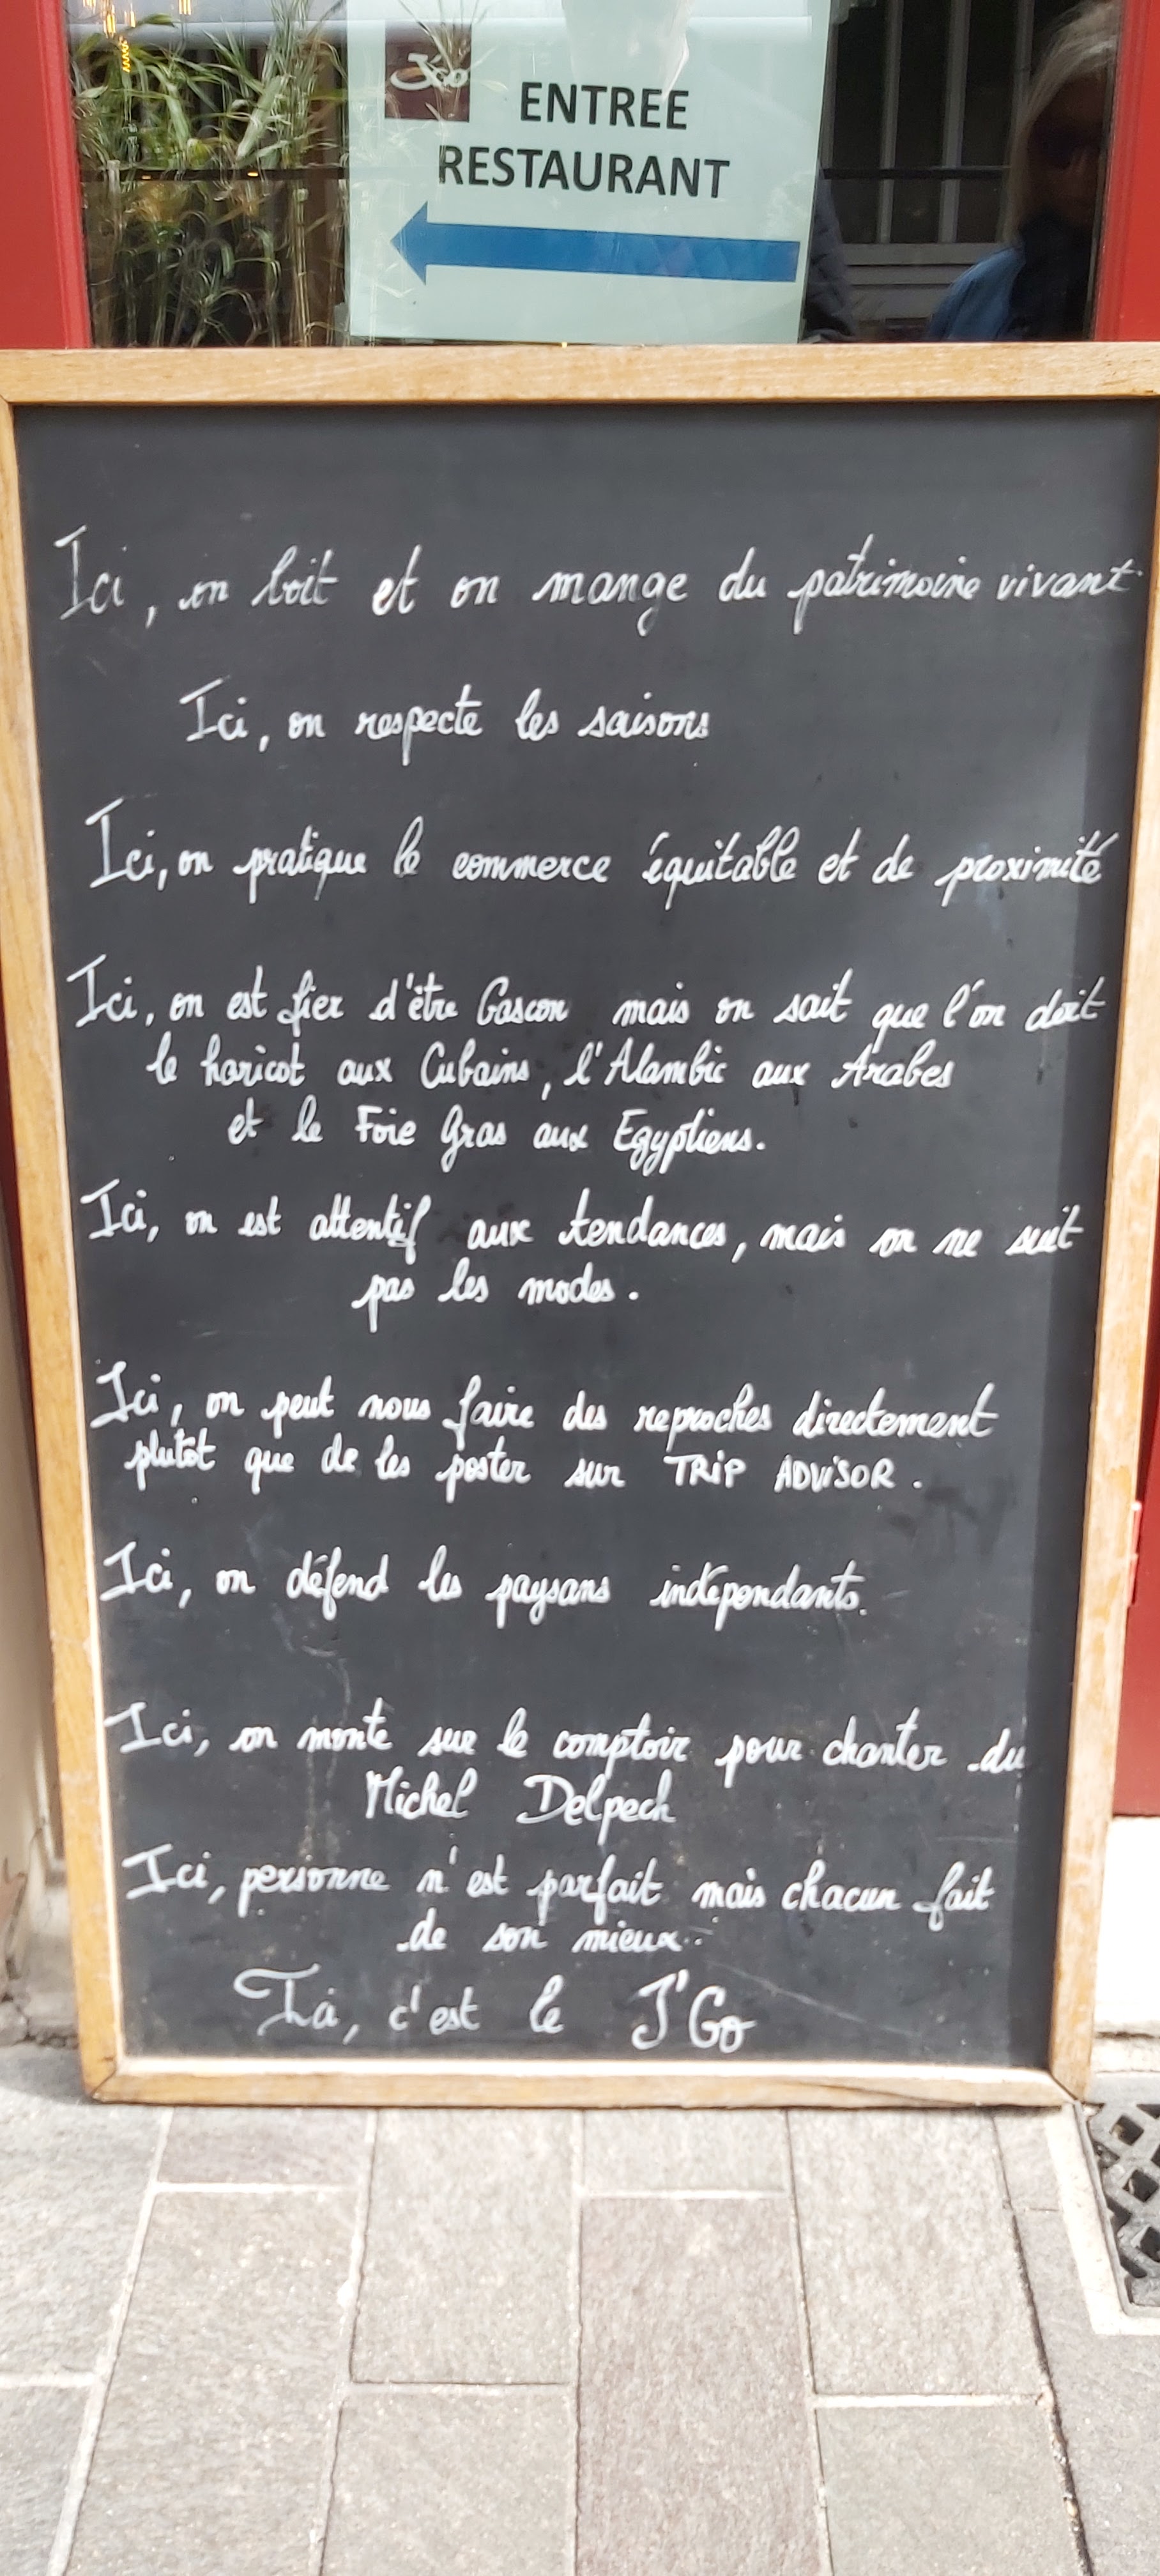 J'Go
ENTREE
RESTAURANT
Ici, on boit et on mange du patrimoine vivant
Ici, on respecte les saisons
Ici, on pratique le commerce équitable et de proximité
Ici, on est fier d'être Gascon mais on sait que l'on doit
le haricot aux Cubains, l'Alambic aux Arabes
et le Foie Gras aux Egyptiens.
Ici, on est attentif aux tendances, mais on ne suit
pas les modes.
Ici, on peut nous faire des reproches directement
plutôt que de les poster sur TRiP ADViSOR.
Ici, on défend les paysans indépendants.
Ici, on monte sur le comptoir pour chanter du
Michel Delpech
Ici, personne n'est parfait mais chacun fait
de son mieux..
Là, c'est le J'Go